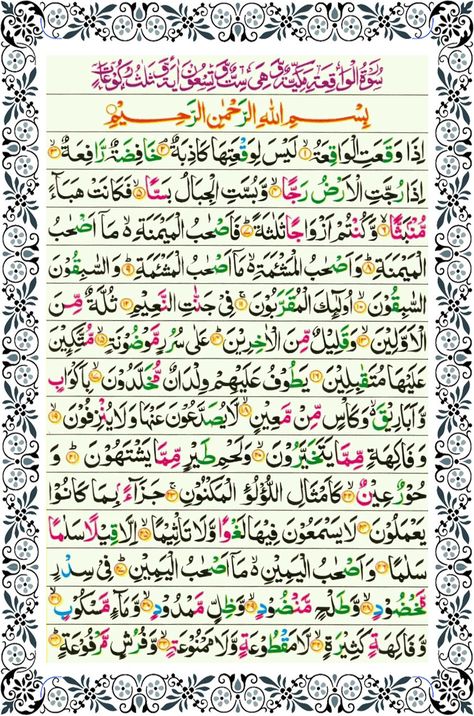 سُوْرَةُ الْوَاقِعَةِ مَكِّيَّةٌ وَّهِىَ سِتٌّ وَّتِسْعُوْنَ اٰيَةً وَّثَلٰثُ رُكُوْعَاتٍ
بِسْمِ اللهِ الرَّحْمٰنِ الرَّحِيْمِ
اِذَا وَقَعَتِ الْوَاقِعَةُ ۙ‏﴿۱﴾ لَيْسَ لِوَقْعَتِهَا كَاذِبَةٌ ۘ‏﴿۲﴾ خَافِضَةٌ رَّافِعَةٌ ۙ‏﴿۳﴾
اِذَا رُجَّتِ الْاَرْضُ رَجًّا ۙ‏﴿۴﴾ وَّبُسَّتِ الْجِبَالُ بَسًّا ۙ‏﴿۵﴾ فَكَانَتْ هَبَآءً
مُّنْۢبَثًّا ۙ‏﴿۶﴾ وَّكُنْتُمْ اَزْوَاجًا ثَلٰثَةً ؕ‏﴿۷﴾ فَاَصْحٰبُ الْمَيْمَنَةِ ۙ مَاۤ اَصْحٰبُ
الْمَيْمَنَةِ ؕ‏﴿۸﴾ وَاَصْحٰبُ الْمَشْـَٔمَةِ ۙ مَاۤ اَصْحٰبُ الْمَشْـَٔمَةِ ؕ‏﴿۹﴾ وَالسّٰبِقُوْنَ
السّٰبِقُوْنَ ۙ‏﴿۱۰﴾ اُولٰٓئِكَ الْمُقَرَّبُوْنَ ۚ‏﴿۱۱﴾ فِىْ جَنّٰتِ النَّعِيْمِ ‏﴿۱۲﴾ ثُلَّةٌ مِّنَ
الْاَوَّلِيْنَ ۙ‏﴿۱۳﴾ وَقَلِيْلٌ مِّنَ الْاٰخِرِيْنَ ؕ‏﴿۱۴﴾ عَلٰى سُرُرٍ مَّوْضُوْنَةٍ ۙ‏﴿۱۵﴾ مُّتَّكِـِٕيْنَ
عَلَيْهَا مُتَقٰبِلِيْنَ ‏﴿۱۶﴾ يَطُوْفُ عَلَيْهِمْ وِلْدَانٌ مُّخَلَّدُوْنَ ۙ‏﴿۱۷﴾ بِاَكْوَابٍ
وَّاَبَارِيْقَ ۙ وَكَاْسٍ مِّنْ مَّعِيْنٍ ۙ‏﴿۱۸﴾ لَّا يُصَدَّعُوْنَ عَنْهَا وَلَا يُنْزِفُوْنَ ۙ‏﴿۱۹﴾
وَفَاكِهَةٍ مِّمَّا يَتَخَيَّرُوْنَ ۙ‏﴿۲۰﴾ وَلَحْمِ طَيْرٍ مِّمَّا يَشْتَهُوْنَ ؕ‏﴿۲۱﴾ وَ
حُوْرٌ عِيْنٌ ۙ‏﴿۲۲﴾ كَاَمْثَالِ اللُّؤْلُـؤِ الْمَكْنُوْنِ ۚ‏﴿۲۳﴾ جَزَآءًۢ بِمَا كَانُوْا
يَعْمَلُوْنَ ‏﴿۲۴﴾ لَا يَسْمَعُوْنَ فِيْهَا لَغْوًا وَّلَا تَاْثِيْمًا ۙ‏﴿۲۵﴾ اِلَّا قِيْلًا سَلٰمًا
سَلٰمًا ‏﴿۲۶﴾ وَاَصْحٰبُ الْيَمِيْنِ ۙ مَاۤ اَصْحٰبُ الْيَمِيْنِ ؕ‏﴿۲۷﴾ فِىْ سِدْرٍ
مَّخْضُوْدٍ ۙ‏﴿۲۸﴾ وَّطَلْحٍ مَّنْضُوْدٍ ۙ‏﴿۲۹﴾ وَّظِلٍّ مَّمْدُوْدٍ ۙ‏﴿۳۰﴾ وَّمَآءٍ مَّسْكُوْبٍ ۙ‏﴿۳۱﴾
وَّفَاكِهَةٍ كَثِيْرَةٍ ۙ‏﴿۳۲﴾ لَّا مَقْطُوْعَةٍ وَّلَا مَمْنُوْعَةٍ ۙ‏﴿۳۳﴾ وَّفُرُشٍ مَّرْفُوْعَةٍ ؕ‏﴿۳۴﴾